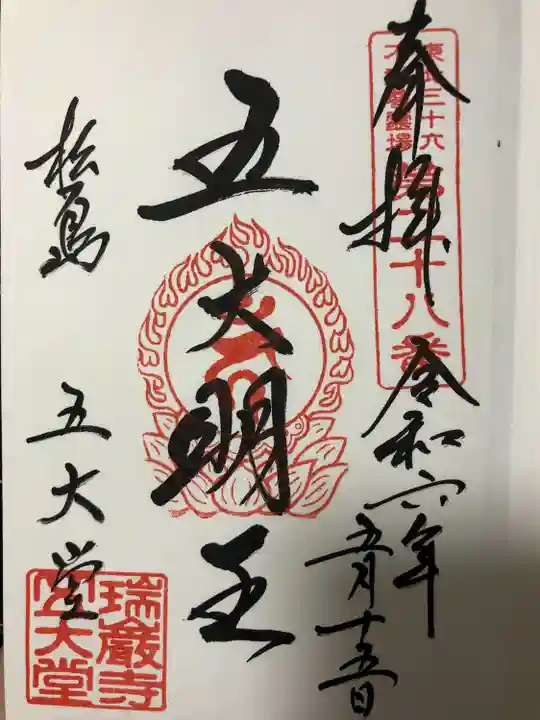 奉拝
東北三十六
不動尊霊場
第二十八番
令和六年
五月十五日
五大明王
松島
五大堂
瑞巌寺
五大堂